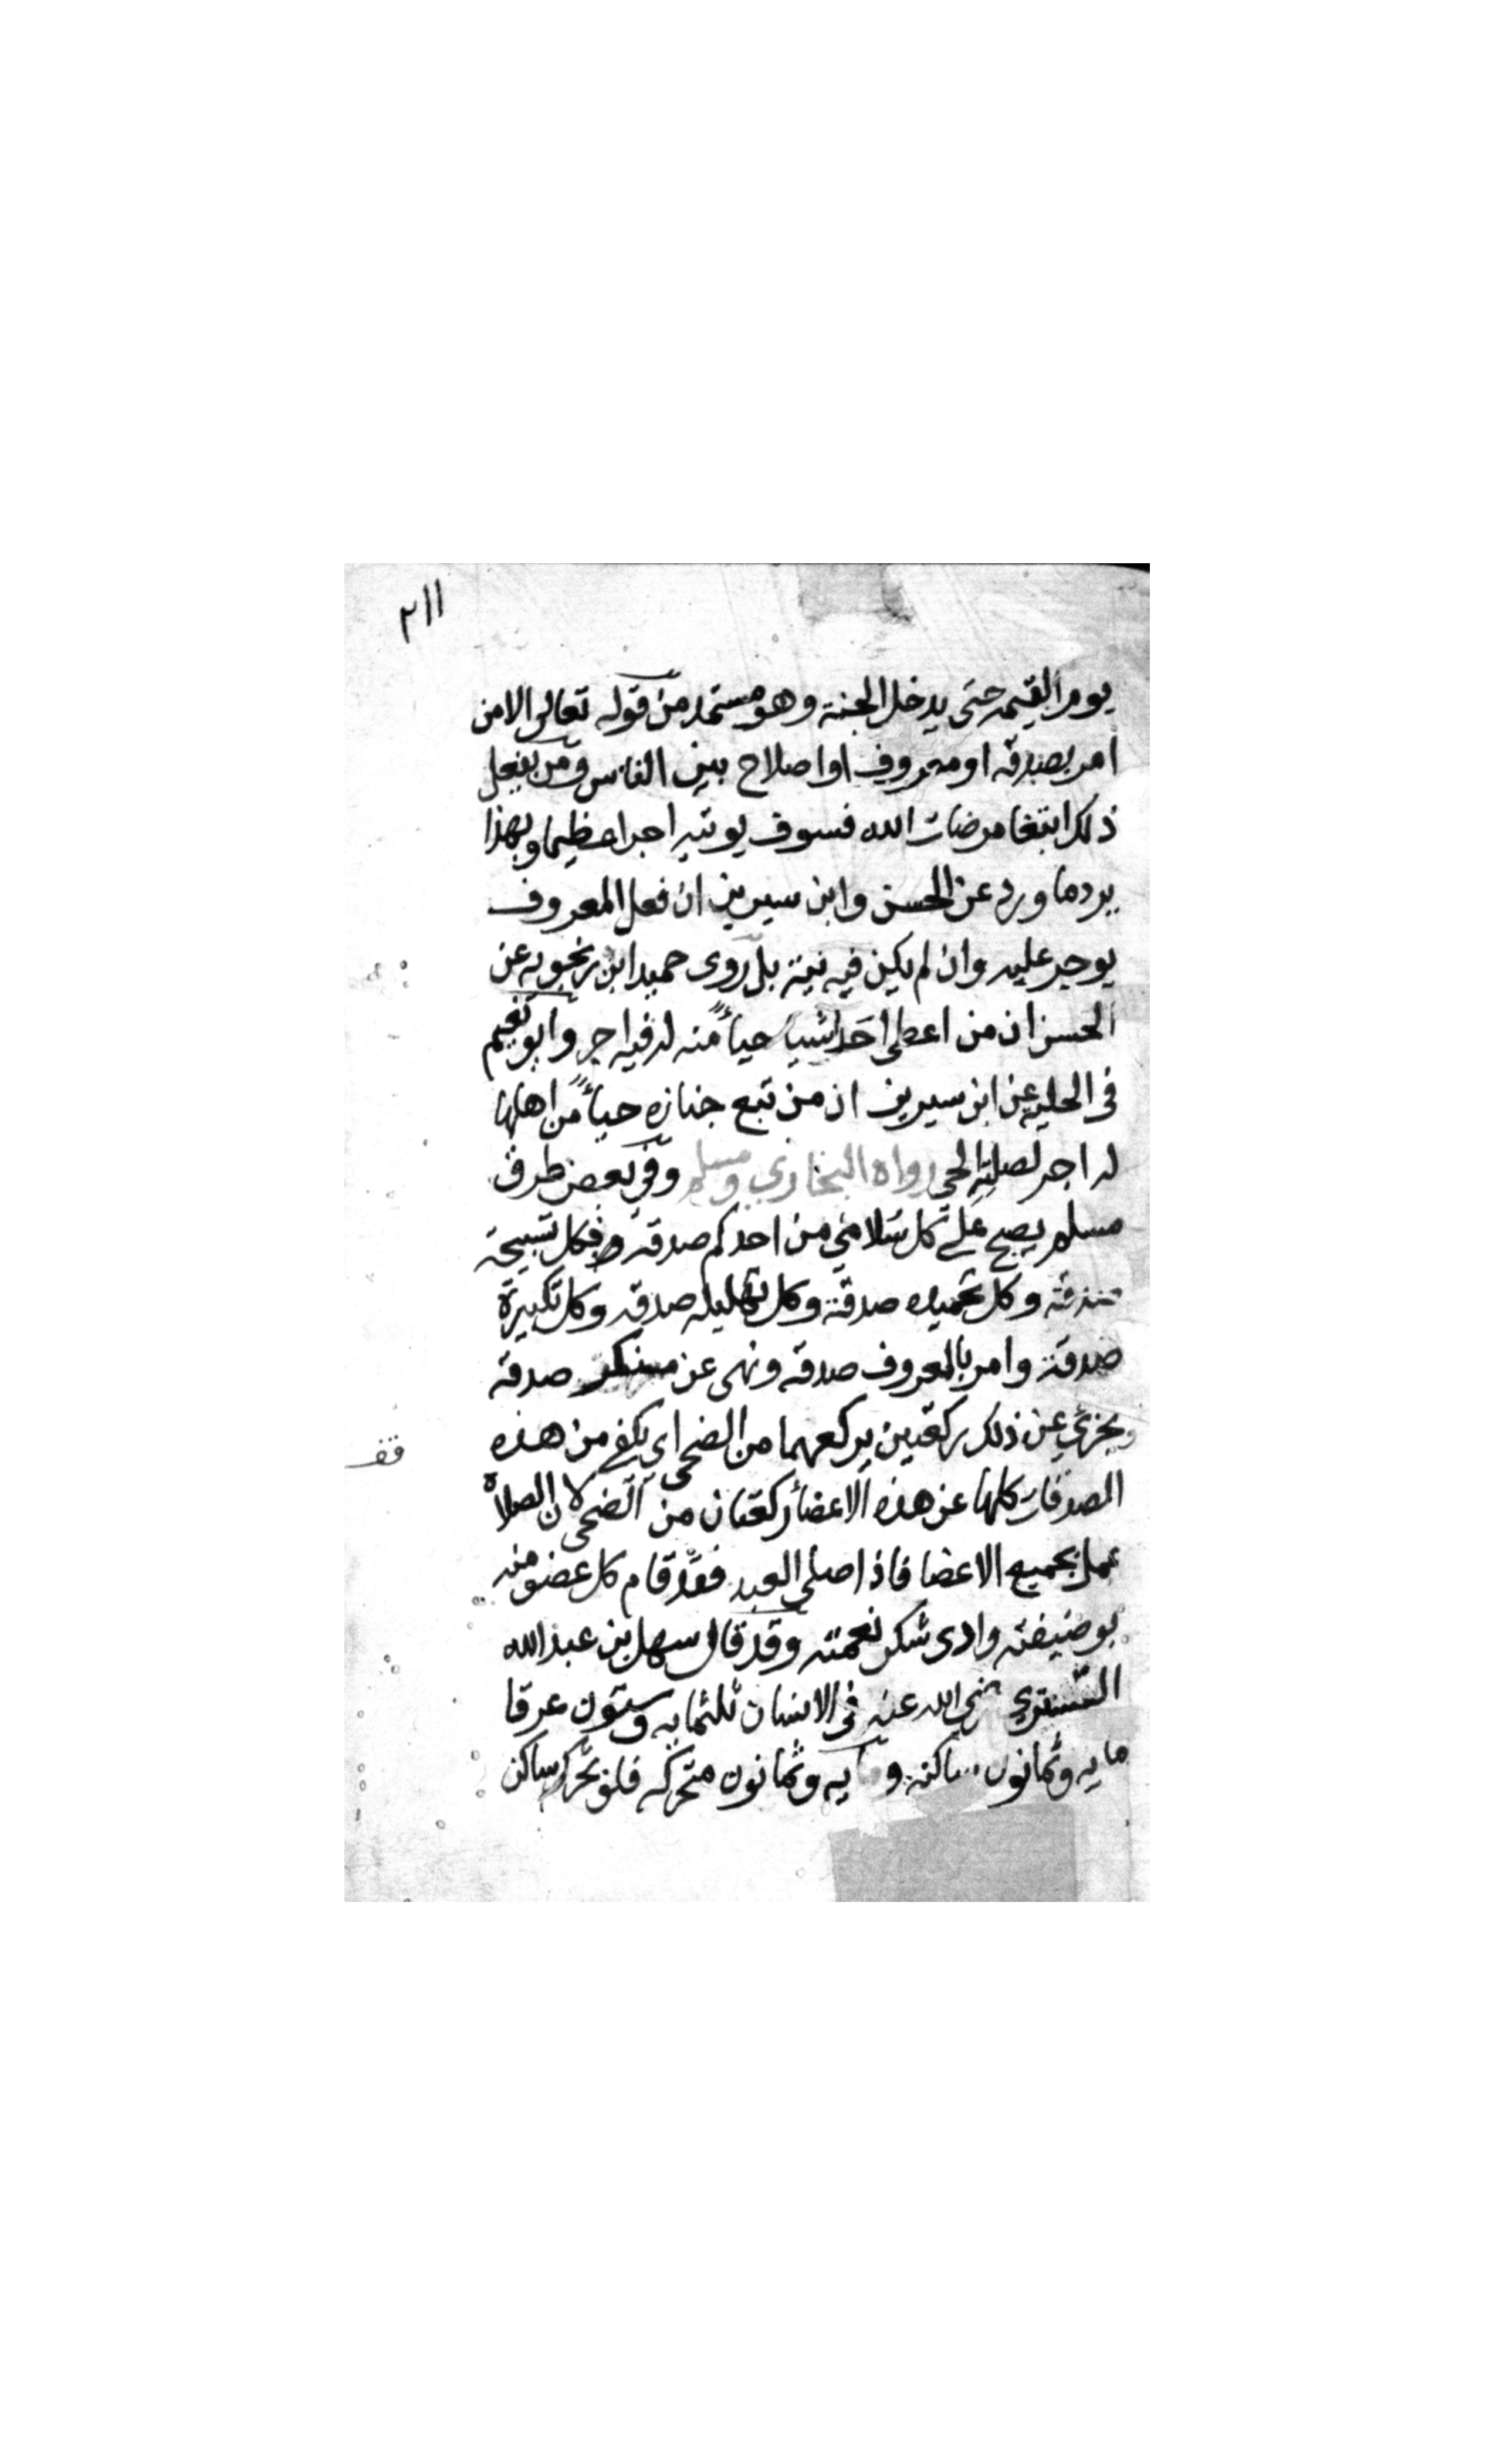 ٢١١
يوم القيمه حتى يدخل الجنة وهو مستمد من قوله تعالى الا من
امر بصدقه او معروف او اصلاح بين الناس ومن يفعل
ذلك ابتغا مرضات الله فسوف يوتيه اجرا عظيما وبهذا
يرد ما ورد عن الحسن وابن سيرين ان فعل المعروف
يوجر عليه وان لم يكن فيه نية بل روى حميد ابن زنجويه عن
الحسن ان من اعطى احدا شيا حياً منه له فيه اجر وابو نعيم
فى الحليه عن ابن سيرين ان من تبع جنازه حياً من اهلها
له اجر لصلته الحي رواه البخاري ومسلم وفي بعض طرق
مسلم يصبح على كل سلامي من احدكم صدقة فكل تسبيحة
صدقة وكل تحميده صدقة وكل تهليله صدقه وكل تكبيرة
صدقة وامر بالمعروف صدقه ونهى عن منكر صدقه
ويجزي عن ذلك ركعتين يركعهما من الضحى اي يكفى من هذه
الصدقات كلها عن هذه الاعضأ ركعتان من الضحى لان الصلاة
عمل بجميع الاعضا فاذا صلى العبد فقد قام كل عضو منه
بوضيفته وادى شكر نعمته وقد قال سهل بن عبد الله
التستري رضي الله عنه فى الانسان ثلثمايه وستون عرقا
مايه وثمانون ساكنه ومايه وثمانون متحركه فلو تحرك ساكن
قف